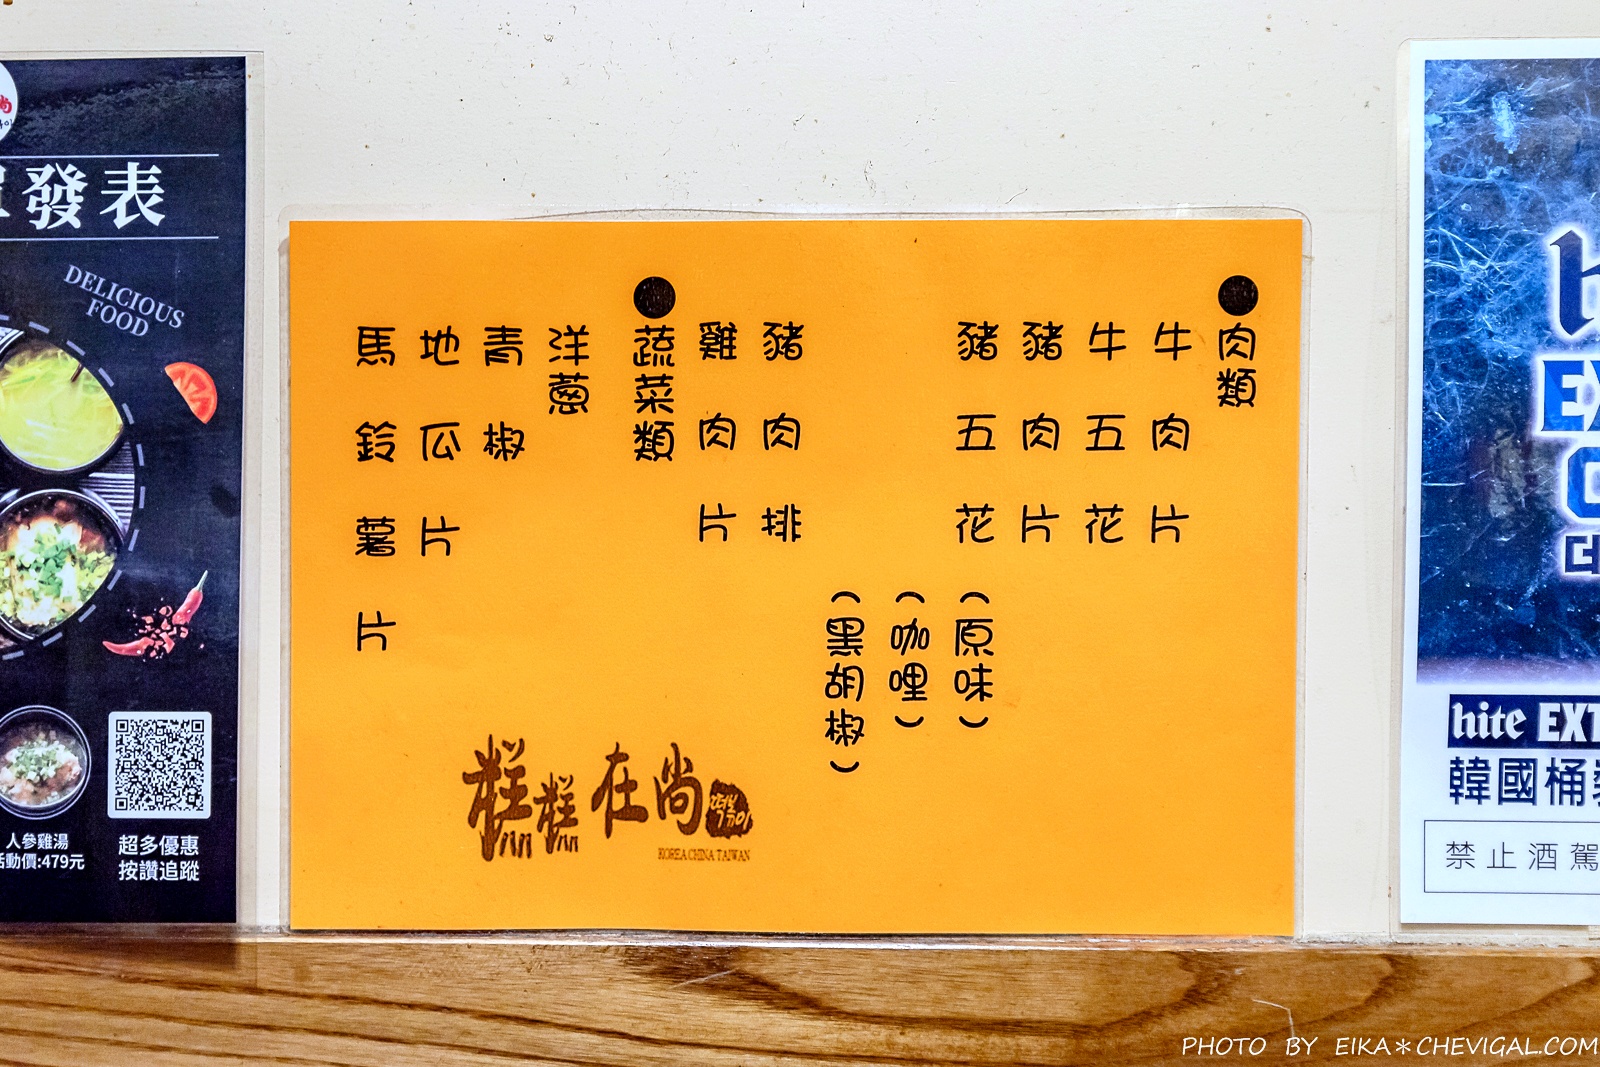 發表
DELICIOUS
FOOD
人參雞湯
活動價:479元
超多優惠
按讚追蹤
●肉類
牛肉片
牛五花
豬肉片
豬五花(原味)
(咖哩)
(黑胡椒)
豬肉排
雞肉片
●蔬菜類
洋蔥
青椒
地瓜片
馬鈴薯片
糕糕在尚
떡볶이
KOREA CHINA TAIWAN
hite EXT
韓國桶裝
禁止酒駕
PHOTO BY EIKA*CHEVIGAL.COM